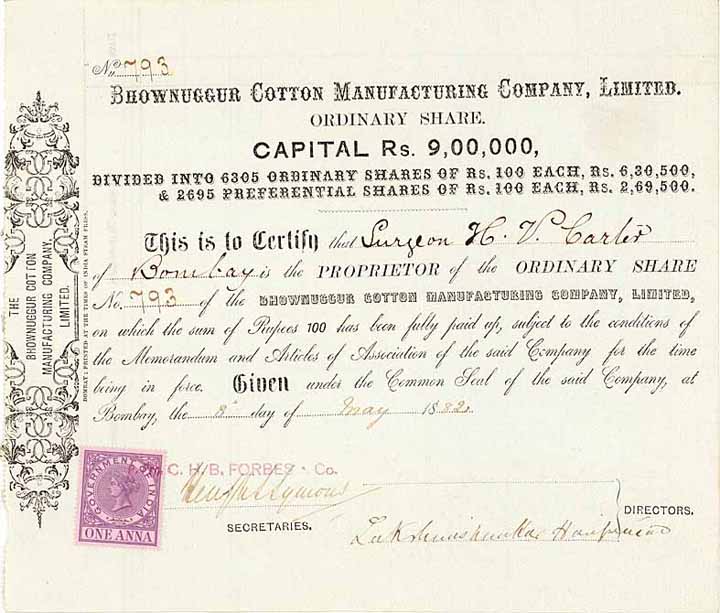 No. 793
BHOWNUGGUR COTTON MANUFACTURING COMPANY, LIMITED.
ORDINARY SHARE.
CAPITAL Rs. 9,00,000,
DIVIDED INTO 6305 ORDINARY SHARES OF RS. 100 EACH, RS. 6,30,500,
& 2695 PREFERENTIAL SHARES OF RS. 100 EACH, RS. 2,69,500.
This is to Certify that Surgeon H. V. Carter
of Bombay is the PROPRIETOR of the ORDINARY SHARE
No. 793 of the BHOWNUGGUR COTTON MANUFACTURING COMPANY, LIMITED,
on which the sum of Rupees 100 has been fully paid up, subject to the conditions of
the Memorandum and Articles of Association of the said Company for the time
being in force. Given under the Common Seal of the said Company, at
Bombay, the 8th day of May 1882
THE
BHOWNUGGUR COTTON
MANUFACTURING COMPANY,
LIMITED.
BOMBAY: PRINTED AT THE TIMES OF INDIA STEAM PRESS.
C. H. B. FORBES & Co.
SECRETARIES.
DIRECTORS.
GOVERNMENT OF INDIA
ONE ANNA